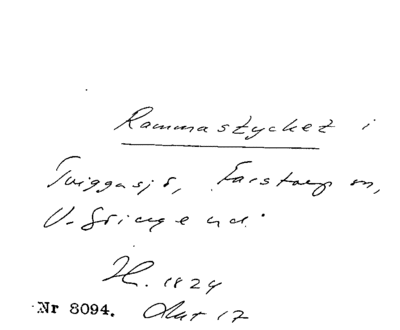 Rammastycket i
Tviggasjö, Farstorp sn,
V. Göinge hd.
H. 1824
Nr 8094. Aut 17